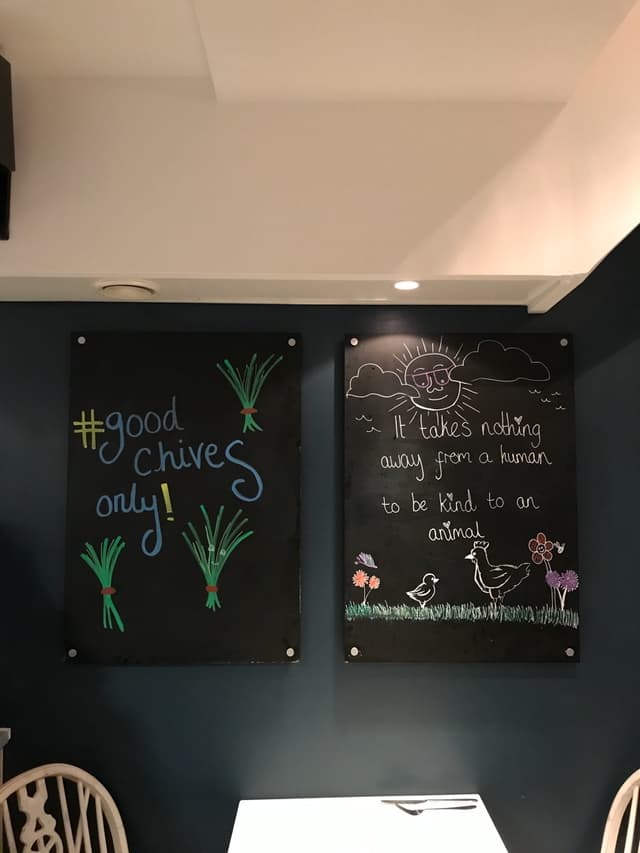 #good
chives
only!
It takes nothing
away from a human
to be kind to an
animal